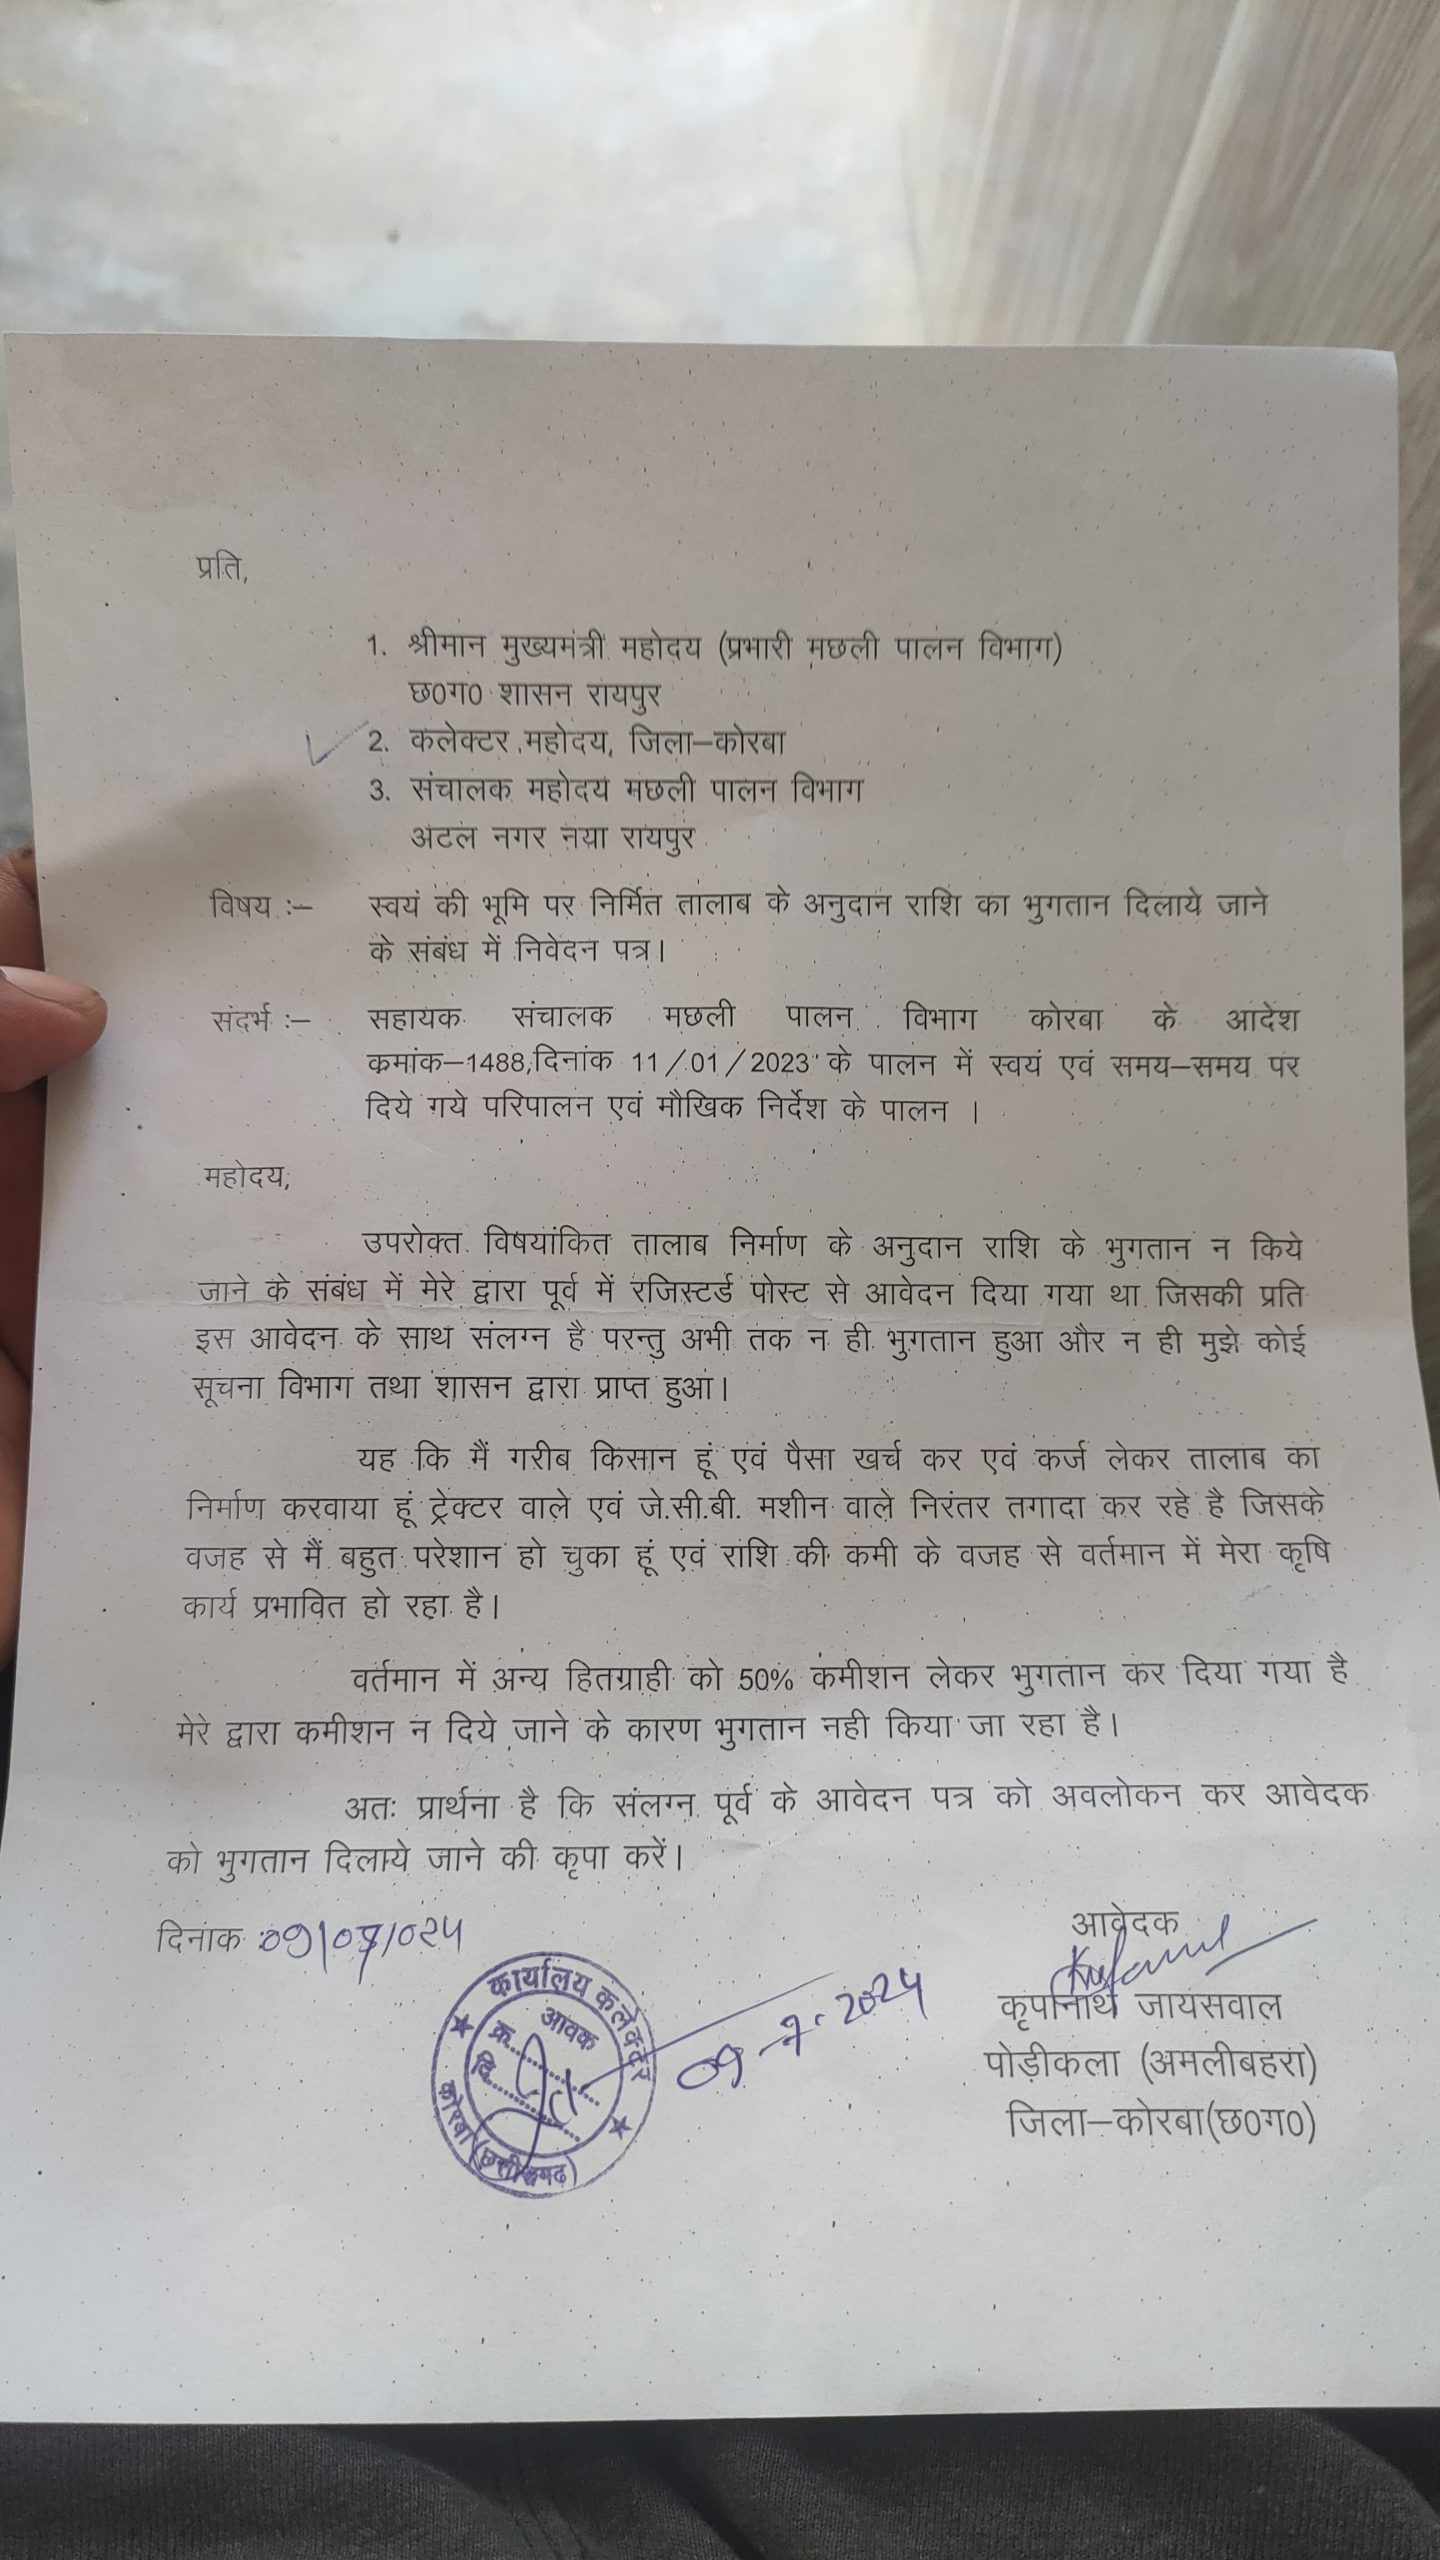 प्रति,
1. श्रीमान मुख्यमंत्री महोदय (प्रभारी मछली पालन विभाग)
छ0ग0 शासन रायपुर
2. कलेक्टर महोदय, जिला–कोरबा
3. संचालक महोदय मछली पालन विभाग
अटल नगर नया रायपुर
विषय :– स्वयं की भूमि पर निर्मित तालाब के अनुदान राशि का भुगतान दिलाये जाने
के संबंध में निवेदन पत्र।
संदर्भ :– सहायक संचालक मछली पालन विभाग कोरबा के आदेश
कमांक–1488,दिनांक 11/01/2023 के पालन में स्वयं एवं समय–समय पर
दिये गये परिपालन एवं मौखिक निर्देश के पालन ।
महोदय,
उपरोक्त विषयांकित तालाब निर्माण के अनुदान राशि के भुगतान न किये
जाने के संबंध में मेरे द्वारा पूर्व में रजिस्टर्ड पोस्ट से आवेदन दिया गया था जिसकी प्रति
इस आवेदन के साथ संलग्न है परन्तु अभी तक न ही भुगतान हुआ और न ही मुझे कोई
सूचना विभाग तथा शासन द्वारा प्राप्त हुआ।
यह कि मैं गरीब किसान हूं एवं पैसा खर्च कर एवं कर्ज लेकर तालाब का
निर्माण करवाया हूं ट्रेक्टर वाले एवं जे.सी.बी. मशीन वाले निरंतर तगादा कर रहे है जिसके
वजह से मैं बहुत परेशान हो चुका हूं एवं राशि की कमी के वजह से वर्तमान में मेरा कृषि
कार्य प्रभावित हो रहा है।
वर्तमान में अन्य हितग्राही को 50% कमीशन लेकर भुगतान कर दिया गया है
मेरे द्वारा कमीशन न दिये जाने के कारण भुगतान नही किया जा रहा है।
अतः प्रार्थना है कि संलग्न पूर्व के आवेदन पत्र को अवलोकन कर आवेदक
को भुगतान दिलाये जाने की कृपा करें।
दिनांक
आवेदक
कृपानाथ जायसवाल
पोड़ीकला (अमलीबहरा)
जिला–कोरबा(छ0ग0)
कार्यालय कलेक्टर
आवक
क्र.
दि.
कोरबा (छत्तीसगढ़)
09-7-2024